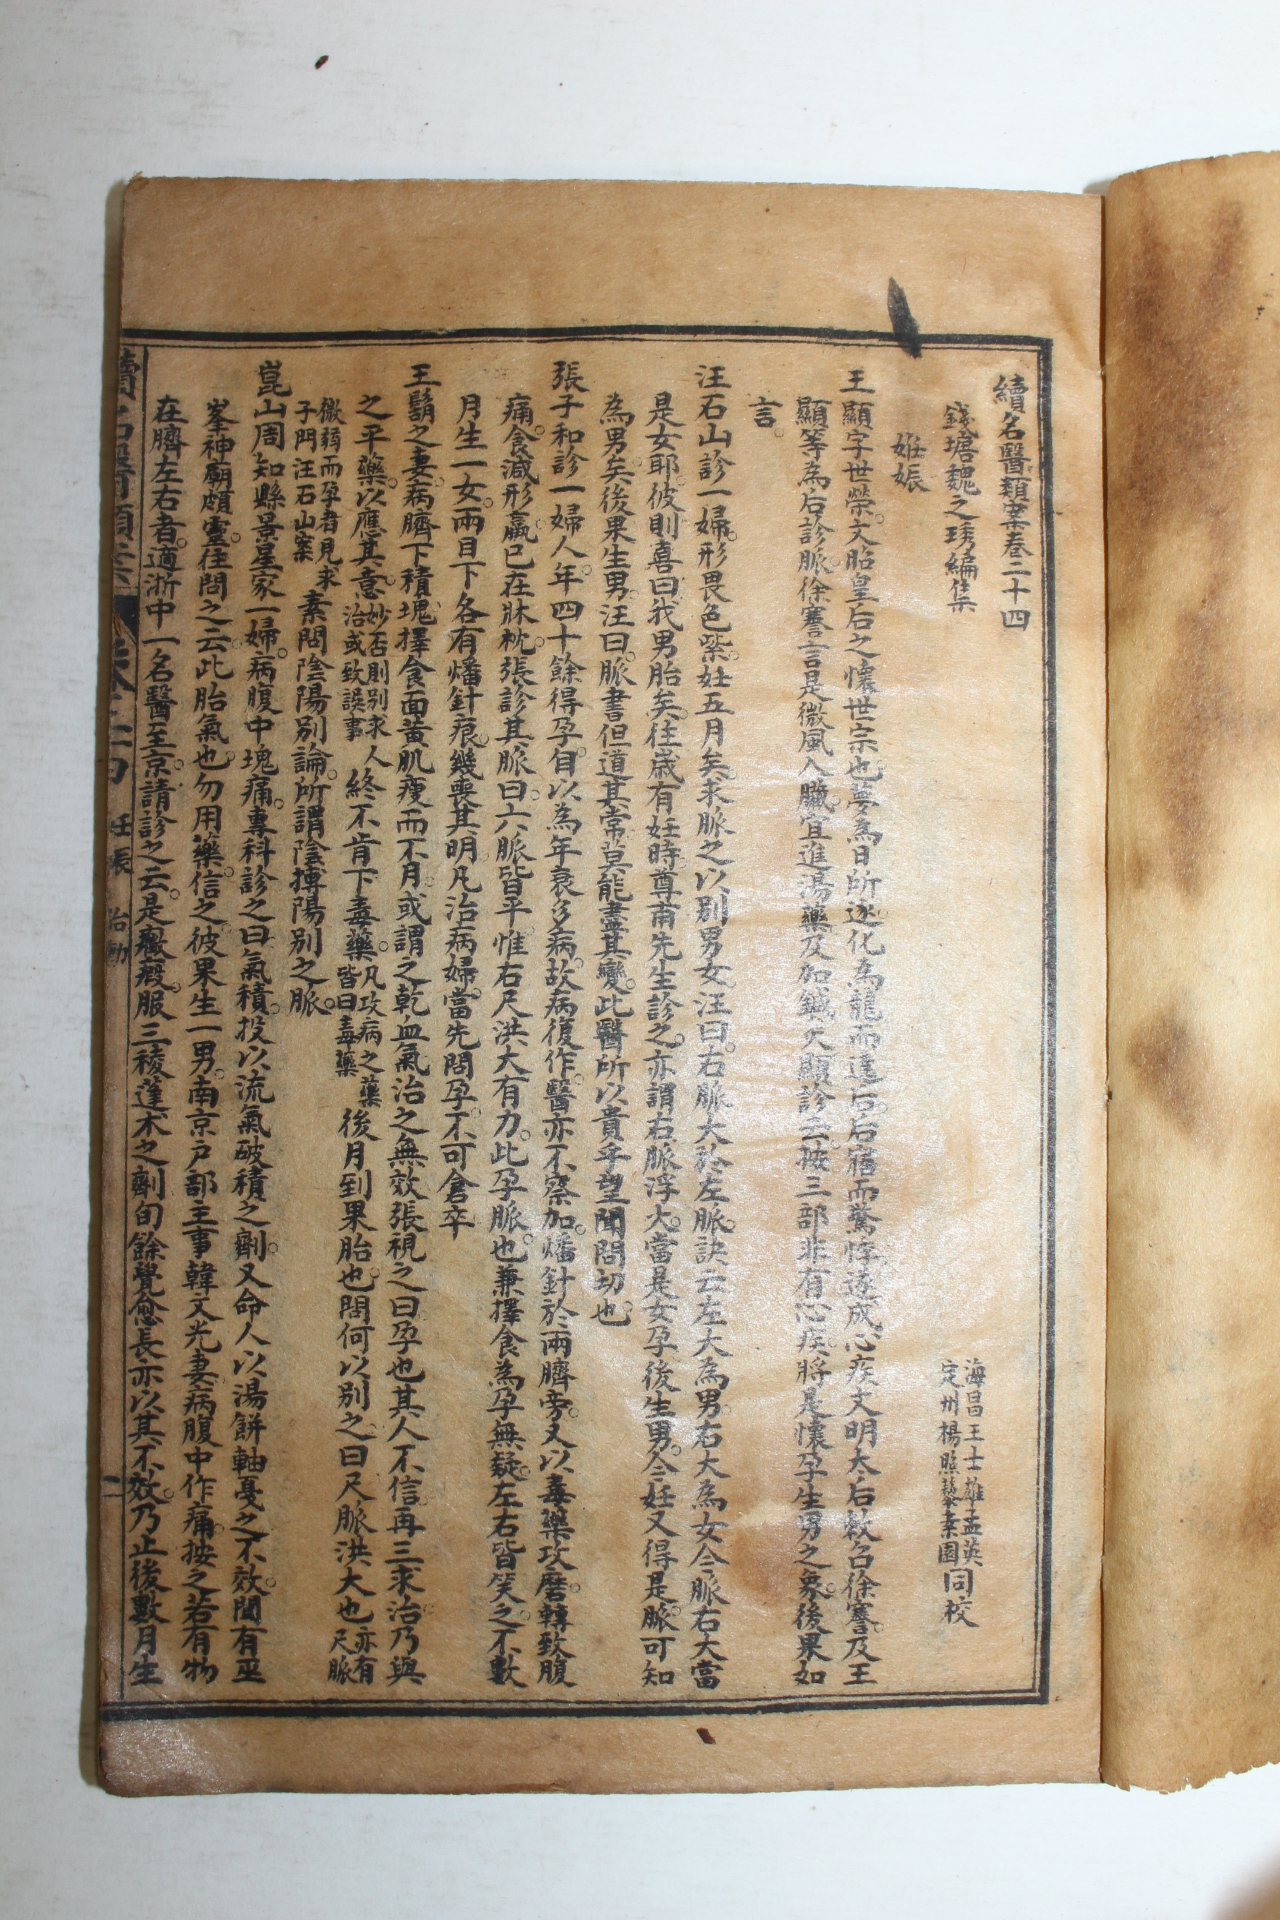 續名醫類案卷二十四
錢塘魏之琇編集
海昌王士雄孟英
定州楊照藜素園同校
妊娠
王顯字世榮文昭皇后之懷世宗也夢為日所逐化為龍而遶后后寤而驚悸遂成心疾文明太后敕召徐謇及王
顯等為后診脈徐謇言是微風入臟宜進湯藥及加鍼灸顯診云按三部非有心疾將是懷孕生男之象後果如
言
汪石山診一婦形畏色紫妊五月矣求脈之以別男女汪曰右脈大於左脈訣云左大為男右大為女今脈右大當
是女耶彼則喜曰我男胎矣往歲有妊時尊甫先生診之亦謂右脈浮大當是女孕後生男今妊又得是脈可知
為男矣後果生男汪曰脈書但道其常莫能盡其變此醫所以貴乎望聞問切也
張子和診一婦人年四十餘得孕自以為年衰多病故病復作醫亦不察加燔針於兩臍旁又以毒藥攻磨轉致腹
痛食減形羸已在牀枕張診其脈曰六脈皆平惟右尺洪大有力此孕脈也兼擇食為孕無疑左右皆笑之不數
月生一女兩目下各有燔針痕幾喪其明凡治病婦當先問孕不可倉卒
王鬍之妻病臍下積塊擇食面黃肌瘦而不月或謂之乾血氣治之無效張視之曰孕也其人不信再三求治乃與
之平藥以應其意妙否則別求人治或致誤事終不肯下毒藥凡攻病之藥皆曰毒藥後月到果胎也問何以別之曰尺脈洪大也亦有尺脈
微弱而孕者見求子門汪石山案素問陰陽別論所謂陰搏陽別之脈
崑山周知縣景星家一婦病腹中塊痛專科診之曰氣積投以流氣破積之劑又命人以湯餅軸戛之不效聞有巫
峯神廟頗靈往問之云此胎氣也勿用藥信之彼果生一男南京戶部主事韓文光妻病腹中作痛按之若有物
在臍左右者適浙中一名醫至京請診之云是癥瘕服三稜蓬朮之劑旬餘覺愈長亦以其不效乃止後數月生
續名醫類案 卷二十四 妊娠 胎動 一